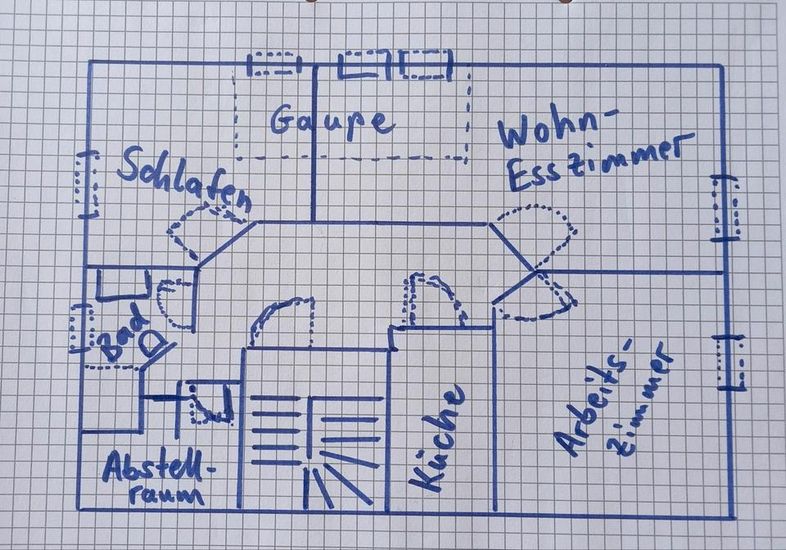 Gaupe
Wohn-
Esszimmer
Schlafen
Bad
Arbeits-
zimmer
Küche
Abstell-
raum